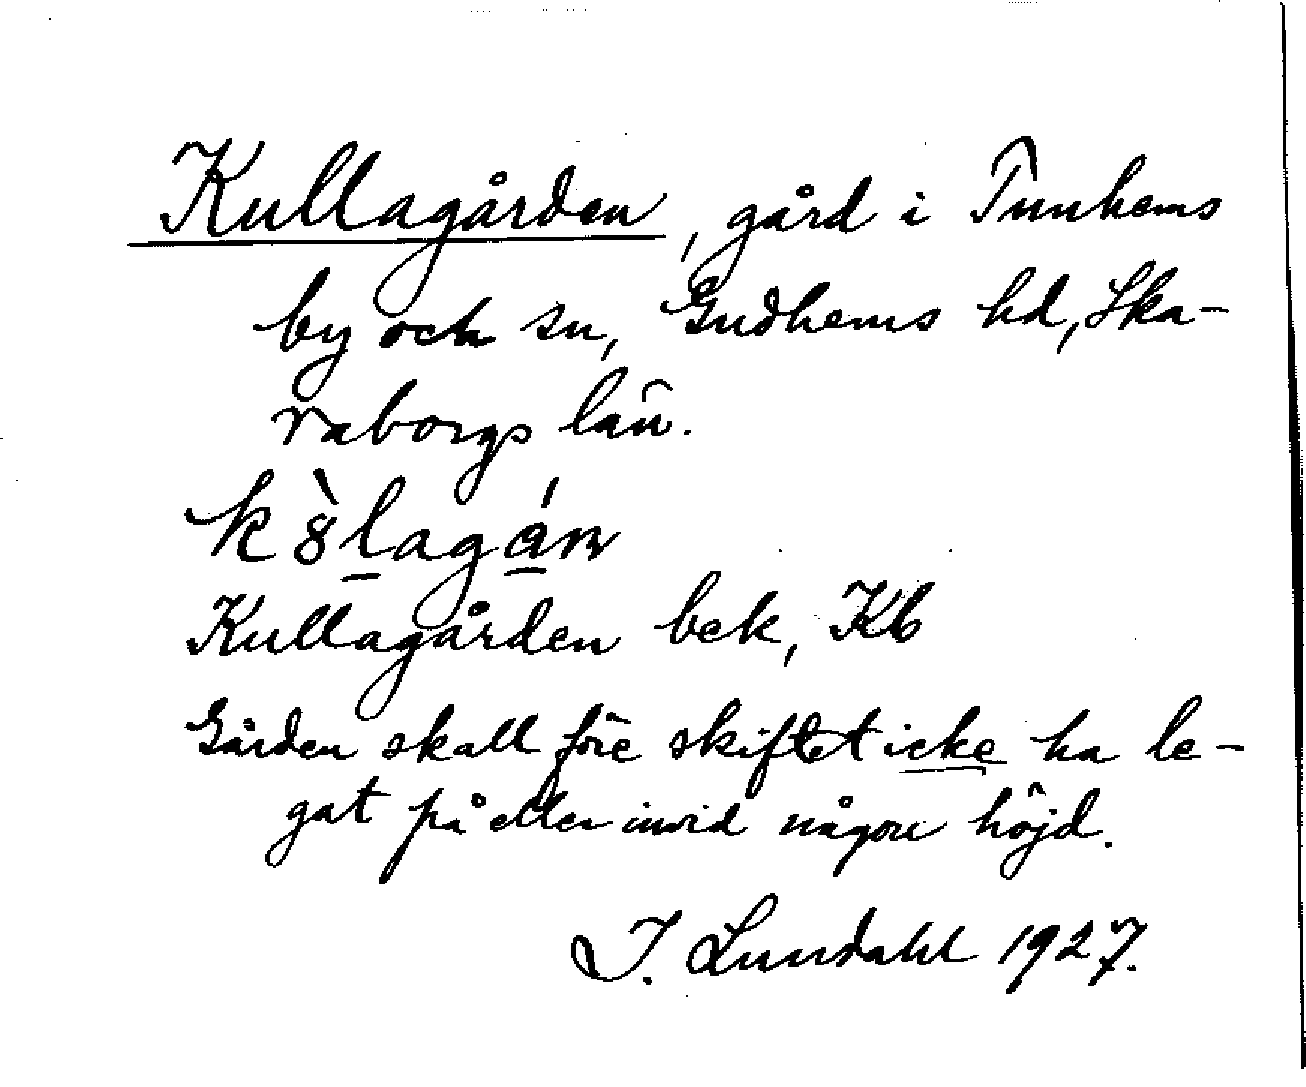 Kullagården, gård i Tunhems
by och sn, Gudhems hd, Ska-
raborgs län.
k8̀lagán
Kullagården bek, Kb
Gården skall före skiftet icke ha le-
gat på eller invid någon höjd.
I. Lundahl 1927.